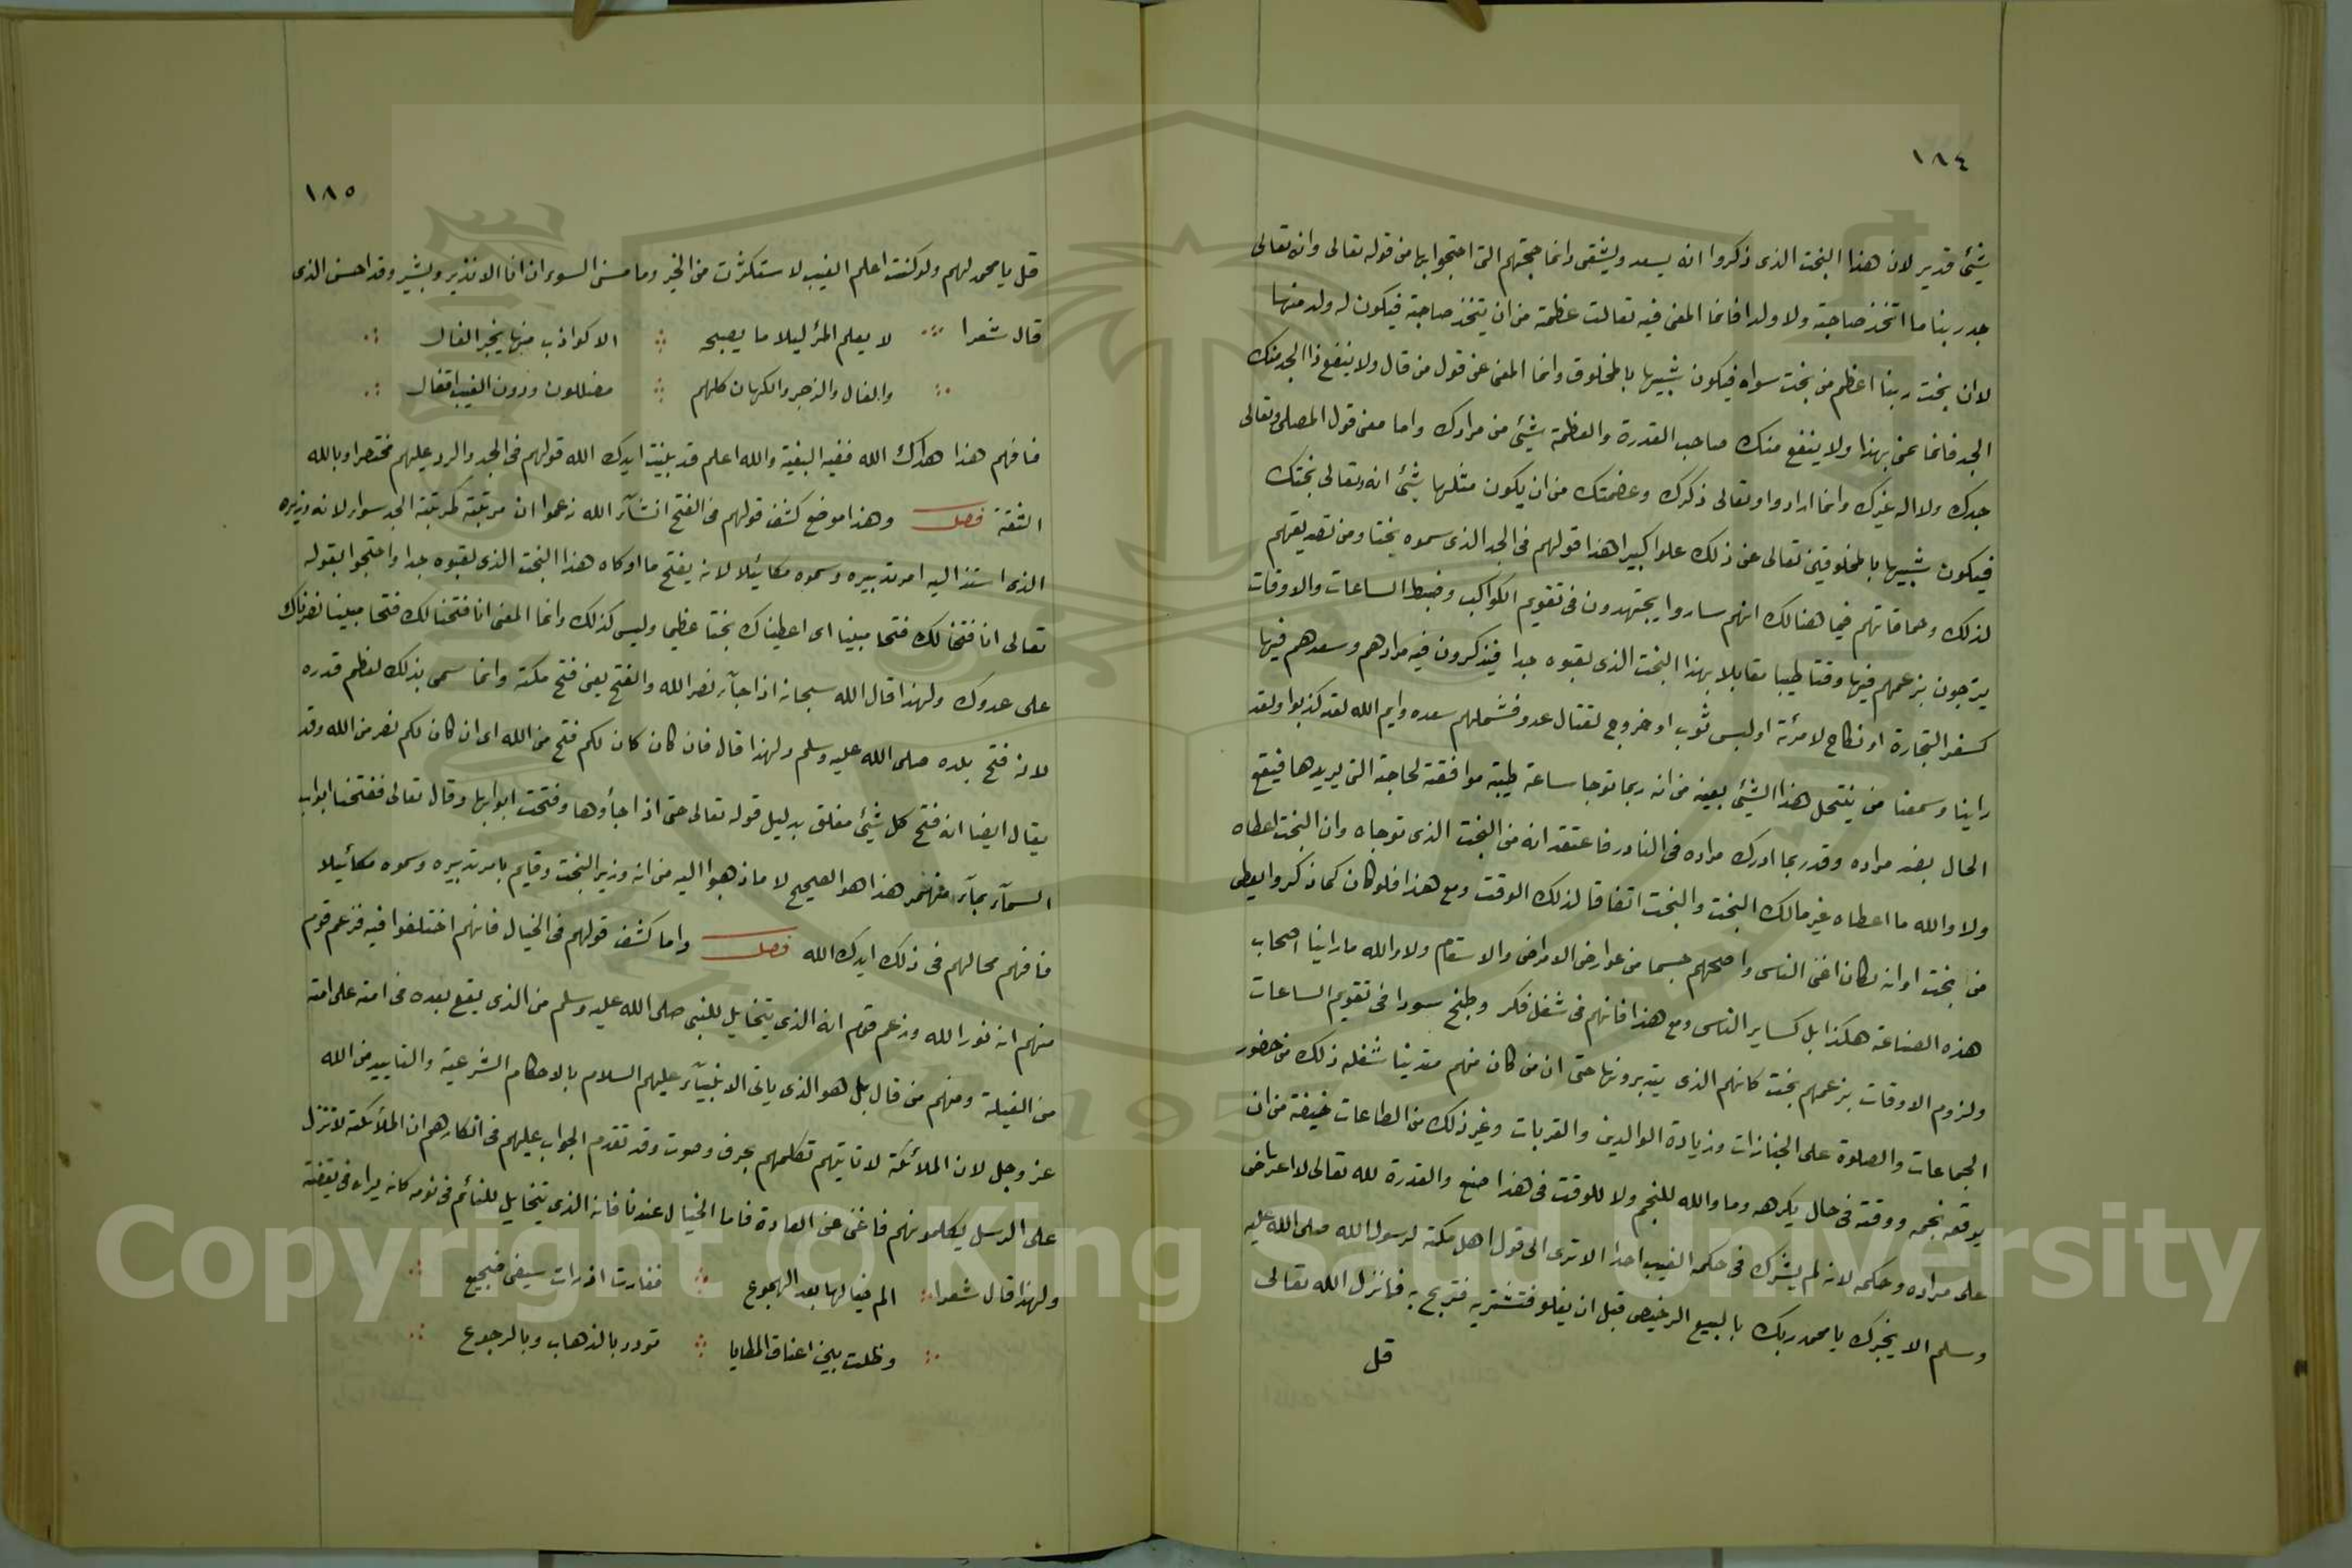 ١٨٤
شئ قدير لان هذا البخت الذى ذكروا انه يسعد ويشقى وانما حجتهم التى احتجوا بها من قوله تعالى وانه تعالى
جد ربنا ما اتخذ صاحبة ولا ولدا فانما المعنى فيه تعالت عظمة من ان يتخذ صاحبة فيكون له ولد منها
لان بخت ربنا اعظم من بخت سواه فيكون شبيها بالمخلوق وانما المعنى عن قول من قال ولا ينفع ذا الجد منك
الجد فانما عنى بهذا ولا ينفع منك صاحب القدرة والعظمة شئ من مرادك واما معنى قول المصلى وتعالى
جدك ولا اله غيرك وانما ارادوا وتعالى ذكرك وعضمتك من ان يكون مثلها شئ انه وتعالى بختك
فيكون شبيها بالمخلوقين تعالى عن ذلك علوا كبيرا هذا قولهم فى الجد الذى سموه بختا ومن تصديقهم
لذلك وحماقاتهم فيما هنالك انهم ساروا يجتهدون فى تقويم الكواكب وضبط الساعات والاوقات
يترجون بزعمهم فيها وقتا طيبا مقابلا بهذا البخت الذى لقبوه جدا فيذكرون فيه مرادهم وسعدهم فيها
كسفر التجارة او نكاح لامرئة او لبس ثوب او خروج لقتال عدو فشملهم سعده وايم الله لقد كذبوا ولقد
راينا وسمعنا من ينتحل هذا الشئ بعينه من انه ربما توجا ساعة طيبة موافقة لحاجة التى يريدها فيقع
الحال بضد مراده وقد ربما ادرك مراده فى النادر فاعتقد انه من البخت الذى توجاه وان البخت اعطاه
ولا والله ما اعطاه غير مالك البخت والبخت اتفاقا لذلك الوقت ومع هذا فلو كان كما ذكروا يعطى
من بخت اوانه لكان اغنى الناس واصحهم جسما من عوارض الامراض والاسقام ولا والله ما راينا اصحاب
هذه الصناعة هكذا بل كساير الناس ومع هذا فانهم فى شغل فكر وطبخ سودا فى تقويم الساعات
ولزوم الاوقات بزعمهم بخت كانهم الذى يتدبرونها حتى ان من كان منهم متدينا شغله ذلك من حضور
الجماعات والصلوة على الجنازات وزيادة الوالدين والقربات وغير ذلك من الطاعات خيفة من ان
يوقعه نجمه ووقته فى حال يكرهه وما والله للنجم ولا للوقت فى هذا صنع والقدرة لله تعالى لا اعتراض
على مراده وحكمه لانه لم يشرك فى حكمه الغيب احدا الا ترى الى قول اهل مكة لرسول الله صلى الله عليه
وسلم الا يخبرك يا محمد ربك بالبيع الرخيص قبل ان يغلو فتشتريه فتربح به فانزل الله تعالى
قل
١٨٥
قل يا محمد لهم ولو كنت اعلم الغيب لاستكثرت من الخير وما مسنى السوء ان انا الا نذير وبشير وقد احسن الذى
قال شعرا لا يعلم المرء ليلا ما يصبحه الا كواذب منها يخبر الفال
والفال والزجر والكهان كلهم مضللون ودون الغيب اقفال
فافهم هذا هداك الله ففيه البغية والله اعلم قد بينت ايدك الله قولهم فى الجد والرد عليهم مختصرا وبالله
الثقة فصل وهذا موضع كشف قولهم فى الفتح انشآء الله زعموا ان مرتبته كمرتبة الجد سواء لانه وزيره
الذى استند اليه امر تدبيره وسموه مكائيلا لانه يفتح ما اوكاه هذا البخت الذى لقبوه جدا واحتجوا بقوله
تعالى انا فتحنا لك فتحا مبينا اى اعطيناك بختا عظيما وليس كذلك وانما المعنى انا فتحنا لك فتحا مبينا نصرناك
على عدوك ولهذا قال الله سبحانه اذا جآء نصر الله والفتح يعنى فتح مكة وانما سمى بذلك لعظم قدره
لانه فتح بلده صلى الله عليه وسلم ولهذا قال فان كان كان لكم فتح من الله اى ان كان لكم نصر من الله وقد
يقال ايضا انه فتح كل شئ مغلق بدليل قوله تعالى حتى اذا جأوها وفتحت ابوابها وقال تعالى ففتحنا ابواب
السمآء بمآء منهمر هذا هو الصحيح لا ما ذهبوا اليه من انه وزير البخت وقايم بامر تدبيره وسموه مكائيلا
فافهم محالهم فى ذلك ايدك الله فصل واما كشف قولهم فى الخيال فانهم اختلفوا فيه فزعم قوم
منهم انه نور الله وزعم قوم انه الذى يتخايل للنبى صلى الله عليه وسلم من الذى يقع بعده فى امته على امته
من الغيلة ومنهم من قال بل هو الذى ياتى الانبيآء عليهم السلام بالاحكام الشرعية والتاييد من الله
عز وجل لان الملائكة لا تاتيهم تكلمهم بحرف وصوت وقد تقدم الجواب عليهم فى انكارهم ان الملائكة لا تنزل
على الرسل يكلمونهم فاغنى عن العادة فاما الخيال عندنا فانه الذى يتخايل للنائم فى نومه كانه يراه فى يقضة
ولهذا قال شعرا الم خيالها بعد الهجوع فغارت اذ رات سيفى ضجيع
وظلت بين اعناق المطايا تودد بالذهاب وبالرجوع
Copyright © King Saud University
195